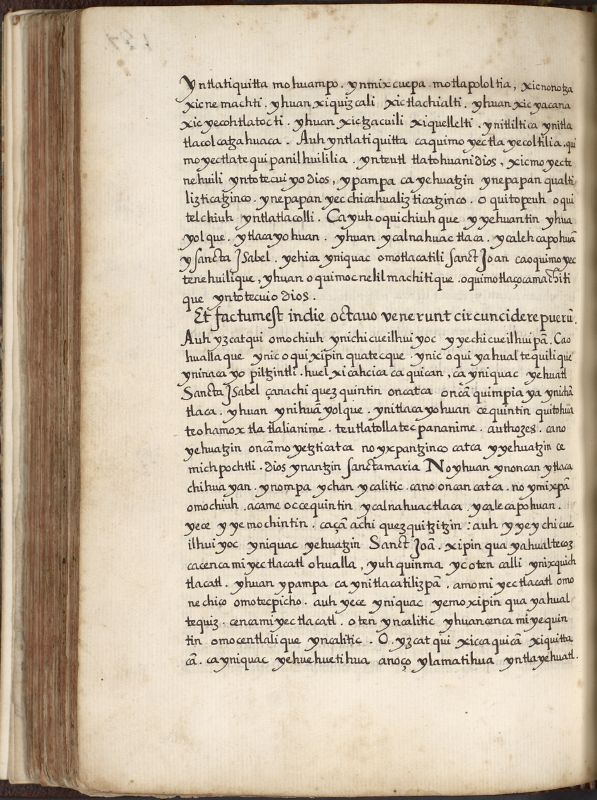 Yntlatiquitta mohuampo. ynmixcuepa motlapololtia, xicnonotza
xicnemachti. yhuan xiquizcali xictlachialti. yhuan xicyacana
xicyecohtlatocti. yhuan xictzacuili xiquellelti. ynitliltica ynitla
tlacolcatzahuaca. Auh yntlatiquitta caquimoyectlayecoltilia, qui
moyectlatequipanilhuililia. ynteutl tlatohuani dios, xicmoyecte
nehuili yntotecuiyo dios, ypampa cayehuatzin ynepapan qualti
lizticatzinco. ynepapan yecchicahualizticatzinco. oquitopeuh oqui
telchiuh yntlatlacolli. Cayuh oquichiuhque yyehuantin yhua
yolque. ytlacayohuan. yhuan ycalnahuactlaca. ycalehcapohuã
ysancta Isabel. yehica yniquac omotlacatili Sanct Joan caoquimoyec
tenehuilique, yhuan oquimocnelilmachitique. oquimotlaçocamachiti
que yntotecuio dios.
Et factum est in die octavo venerunt circuncidere puerũ.
Auh yzcatqui omochiuh ynichicueilhuiyoc yyechicueilhuipã. Cao
huallaque ynic oquixipinquatecque. ynic oquiyahualtequilique
yninacayo piltzintli. huel xicahcicacaquican, cayniquac yehuatl
Sancta Isabel çanachi quezquintin oncatca oncã quimpiaya ynichã
tlaca. yhuan ynihuãyolque. ynitlacayohuan cequintin quitohua
teohamoxtlatlalianime. teutlatollatecpananime. authozes. cano
yehuatzin oncãmoyetzticatca noyxpantzinco catca yyehuatzin ce
michpochtli. dios ynantzin sancta maria Noyhuan ynoncan ytlaca
chihuayan. ynompa ychan ycalitic. canoncan catca. noymixpã
omochiuh. acame occequintin ycalnahuactlaca ycalecapohuan.
yece yyemochintin. caçã achi quezquitzitzin: auh yyeychicue
ilhuiyoc yniquac yehuatzin Sanct Joã. xipinquayahualtecoz
cacenca miyec tlacatl ohualla, yuhquinma ycoten calli ynixquich
tlacatl. yhuan ypampa caynitlacatilizpã. amo miyec tlacatl omo
nechico omotecpicho. auh yece yniquac yemoxipinquayahual
tequiz. cenca miyec tlacatl. oten yncalitic yhuan cenca miyequin
tin omocentlalique yncalitic. O. yzcatqui xiccaquicã xiquitta
cã. cayniquac yehuehuetihua anoço ylamatihua yntlayehuatl.